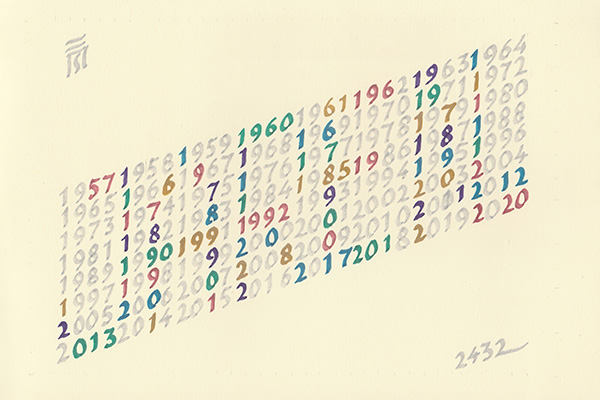 19571958195919601961196219631964
19651966196719681969197019711972
19731974197519761977197819791980
19811982198319841985198619871988
19891990199119921993199419951996
19971998199920002001200220032004
20052006200720082009201020112012
20132014201520162017201820192020
2432